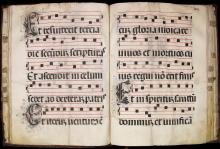 Et resurrexit tercia
die secundum scripturas
Et ascendit in celum
sedet ad dexteram patris
Et iterum venturus est
cum gloria iudicare
vivos et mortuos cu
ius regni non erit finis
Et in spiritum sanctu
dominum et vivifica